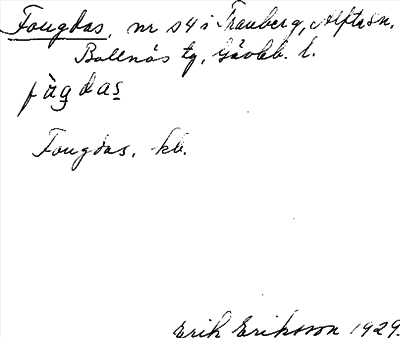 Fougdas, nr 24 i Tranberg, Alfta sn,
Bollnäs tg, Gävleb. l.
fàgdas
Fougdas, kb.
Erik Eriksson 1929.